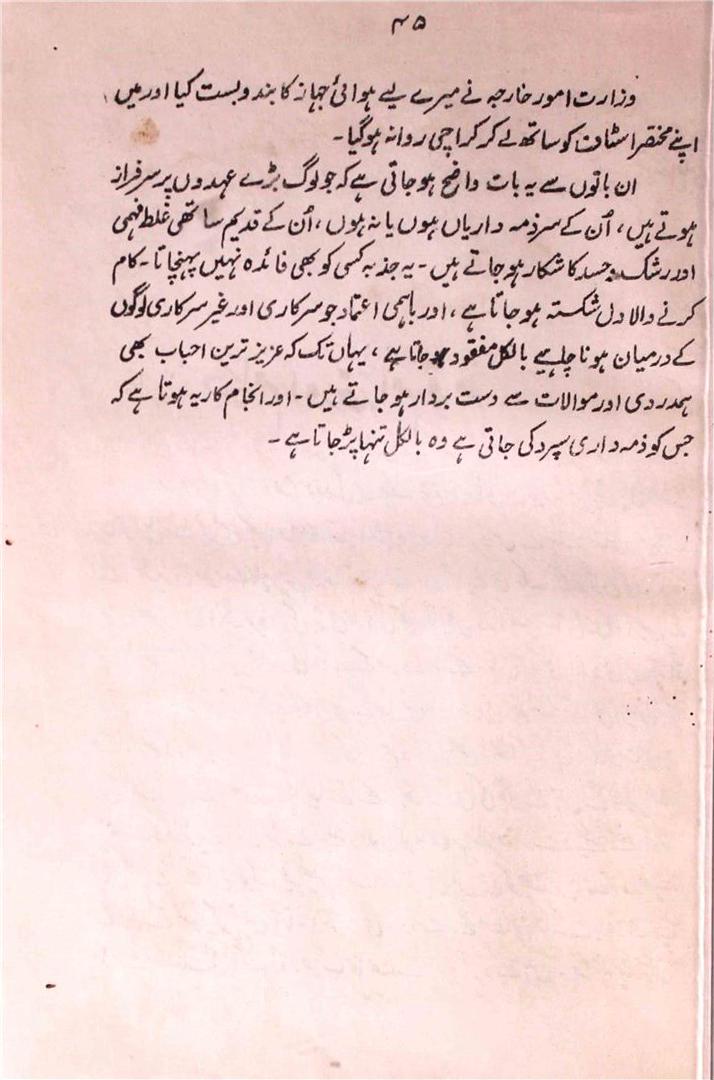 ۴۵
وزارت امور خارجہ نے میرے لیے ہوائی جہاز کا بندوبست کیا اور میں
اپنے مختصر اسٹاف کو ساتھ لے کر کراچی روانہ ہوگیا۔
ان باتوں سے یہ بات واضح ہو جاتی ہے کہ جو لوگ بڑے عہدوں پر سرفراز
ہوتے ہیں، اُن کے سر ذمہ داریاں ہوں یا نہ ہوں، اُن کے قدیم ساتھی غلط فہمی
اور رشک و حسد کا شکار ہو جاتے ہیں۔ یہ جذبہ کسی کو بھی فائدہ نہیں پہنچاتا۔ کام
کرنے والا دل شکستہ ہو جاتا ہے، اور باہمی اعتماد جو سرکاری اور غیر سرکاری لوگوں
کے درمیان ہونا چاہیے بالکل مفقود ہو جاتا ہے، یہاں تک کہ عزیز ترین احباب بھی
ہمدردی اور موالات سے دست بردار ہو جاتے ہیں۔ اور انجام کار یہ ہوتا ہے کہ
جس کو ذمہ داری سپرد کی جاتی ہے وہ بالکل تنہا پڑ جاتا ہے۔